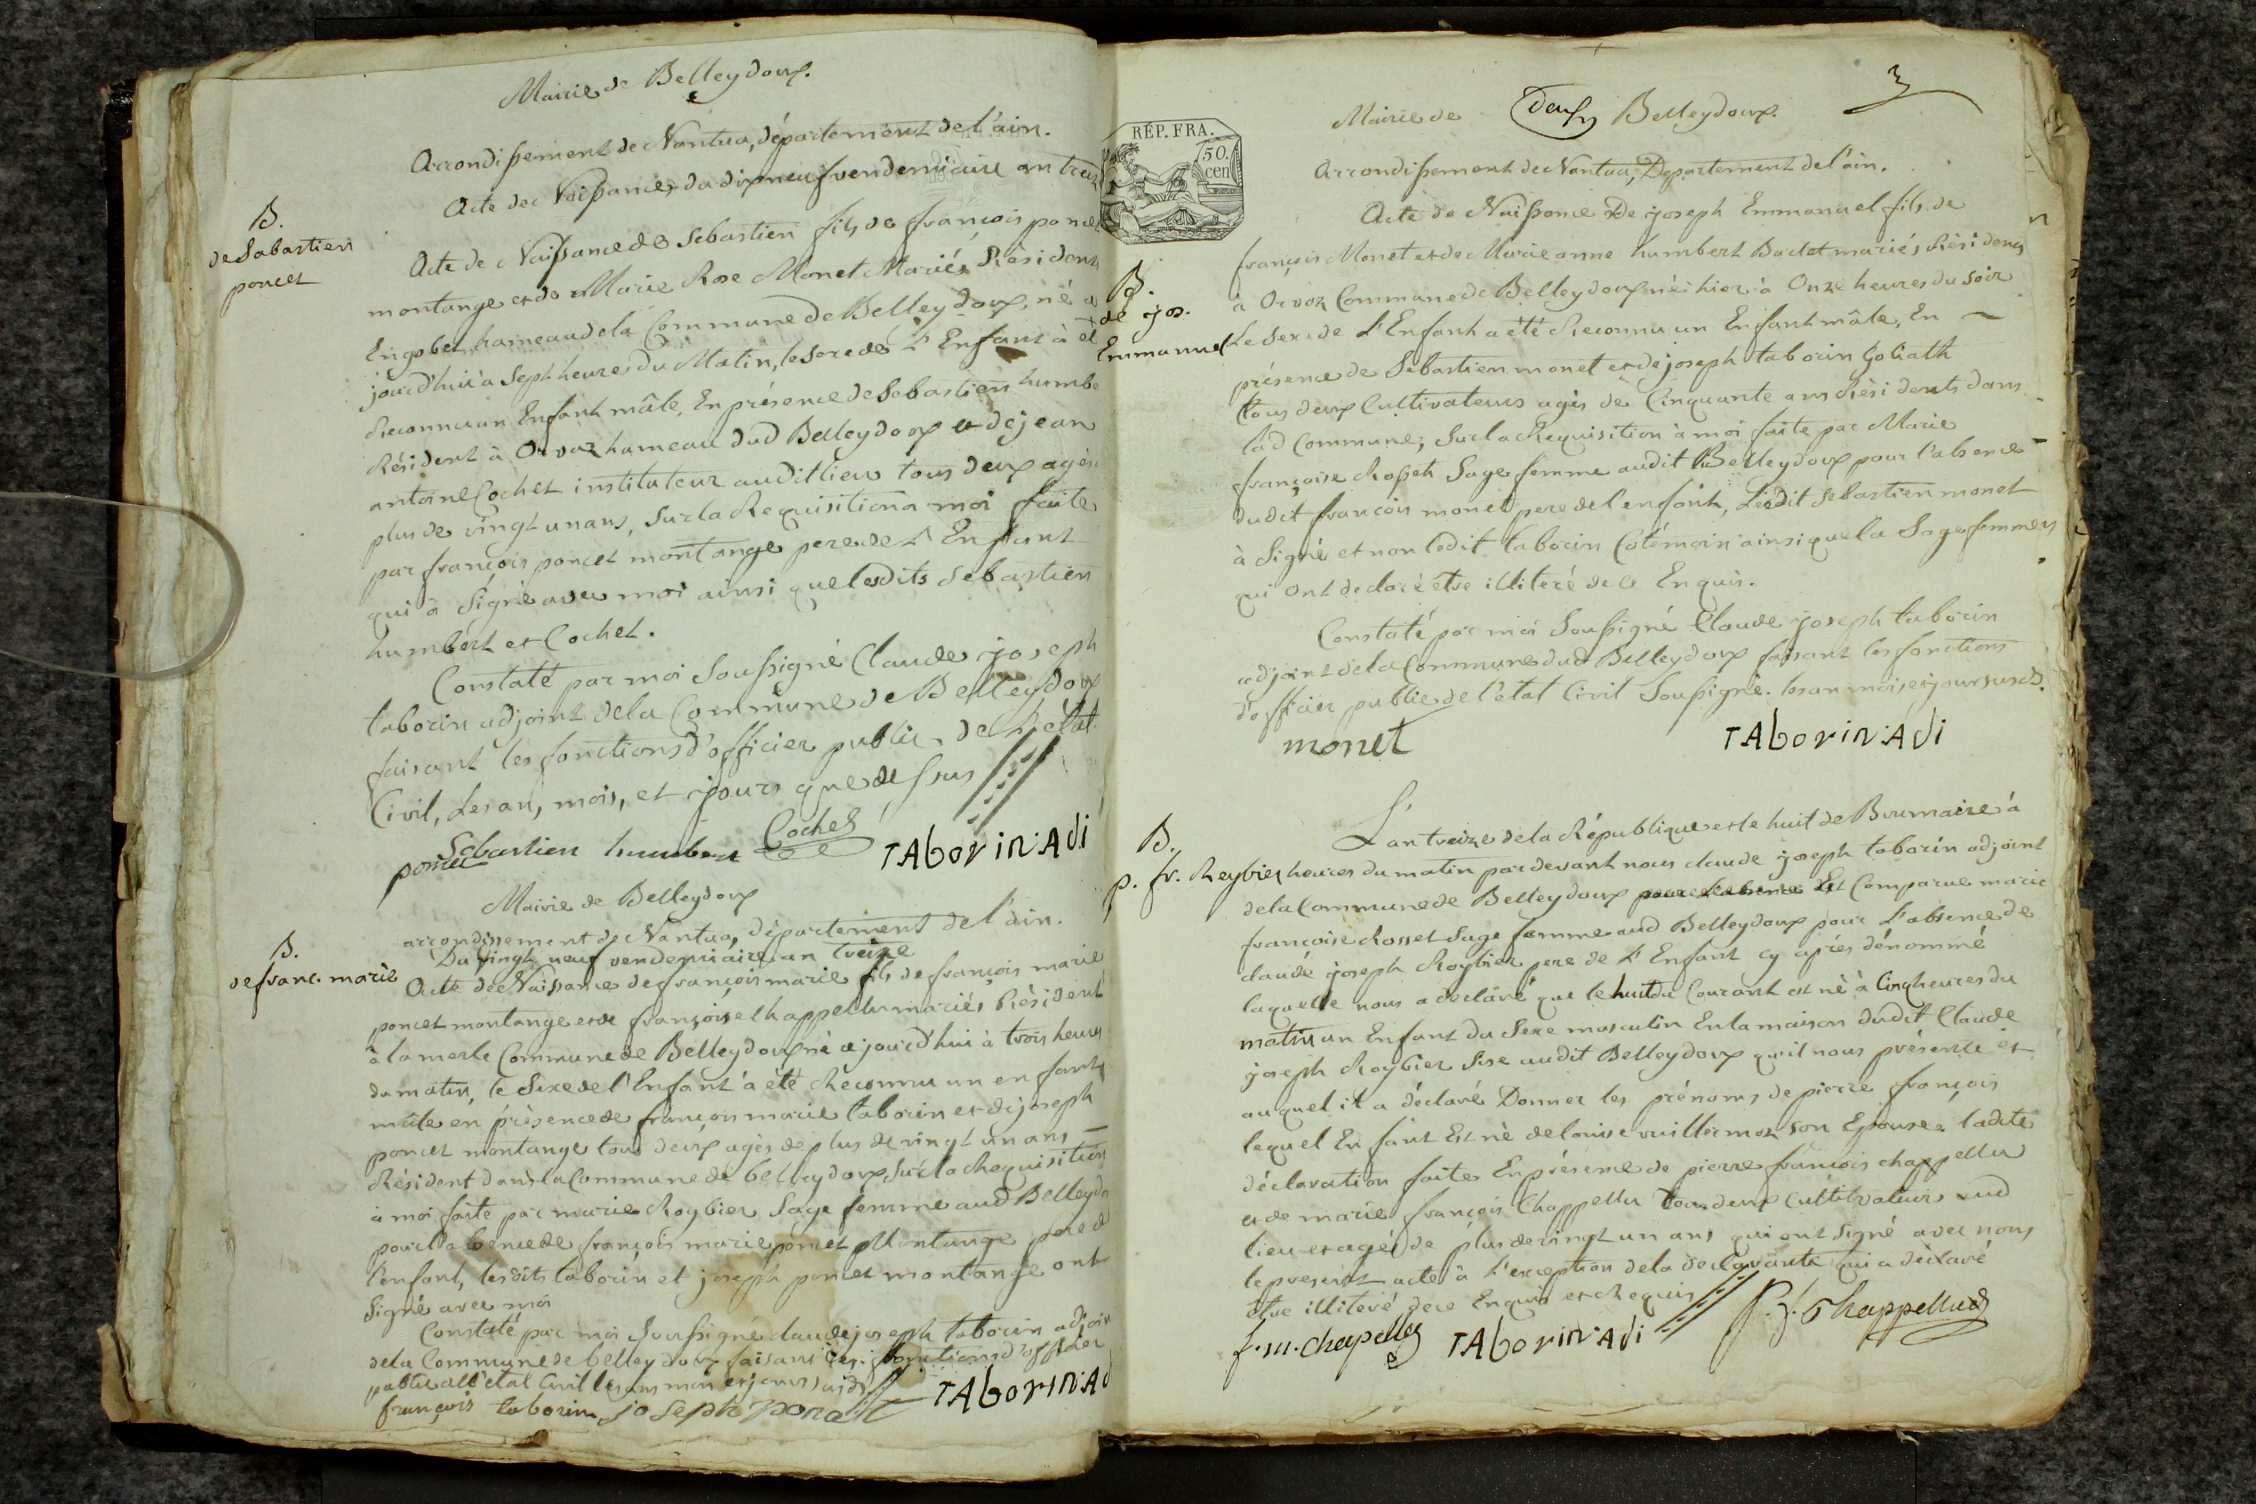 Mairie de Belleydoux.
Arrondissement de Nantua, département de l'ain.
Acte de Naissance, du dixneuf vendemiaire an treiz
B.
de Sabastien
poncet
Acte de Naissance de Sebastien fils de françois poncet
montange et de Marie Rose Monet Mariés Résidents
En gobet hameau de la Commune de Belleydoux, né a
jourd'hui à Sept heures du Matin, le sexe de L'Enfant à ét
Reconnu un Enfant mâle, En présence de Sebastien humbe
Résident à Orvaz hameau dud Belleydoux et de jean
antoine Cochet instituteur audit lieu tous deux agés
plus de vingt un ans, Sur la Requisition à moi faite
par françois poncet montange pere de L'Enfant
qui à Signé avec moi ainsi que lesdits Sebastien
humbert et Cochet.
Constaté par moi Soussigné Claude joseph
taborin adjoint de la Commune de Belleydoux
faisant les fonctions d'officier public de L'état
Civil, Les an, mois, et jours que dessus
poncet Sebastien humbert Cochet TAborin Adi
Mairie de Belleydoux
arrondissement de Nantua, département de l'ain.
Du vingt neuf vendemiaire an treize
B.
de franc. marie
Acte de Naissance de françois marie fils de françois marie
poncet montange et de françoise Chappellu mariés Résident
à la merle Commune de Belleydoux né ajourd'hui à trois heures
du matin, le Sexe de l'Enfant à été Reconnu un enfant
mâle en présence de françois marie taborin et de joseph
poncet montange tous deux agés de plus de vingt un ans
Résident dans la Commune de belleydoux Sur la Requisition
à moi faite par marie Roybier Sage femme aud Belleydo
pour l'absence de françois marie poncet Montange pere d
l'enfant, lesdits taborin et joseph poncet montange ont
Signé avec moi
Constaté par moi Soussigné claude joseph taborin adjoin
de la Commune de belleydoux faisans les fonctions d'officier
public de l'état Civil les ans mois et jours susds
françois taborin joseph ponsait TAborin Ad
3
Mairie de deux Belleydoux.
RÉP. FRA.
50. cen
Arrondissement de Nantua, Departement de l'ain.
Acte de Naissance De joseph Emmanuel fils de
françois Monet et de Marie anne humbert Badet mariés Résidents
B.
de jos.
Emmanuel
à Orvaz Commune de Belleydoux né hier à Onze heures du soir
Le Sexe de L'Enfant a été Reconnu un Enfant mâle, En
présence de Sebastien monet et de joseph taborin goliath
tous deux Cultivateurs agés de Cinquante ans Résidents dans
lad Commune; Sur la Requisition à moi faite par Marie
françoise Rosset Sage femme audit Belleydoux pour l'absence
dudit françois monet pere de l'enfant, Ledit Sebastien monet
à Signé et non ledit taborin Cotémoin ainsi que la Sage femme
qui ont declaré etre illiteré de ce Enquis.
Constaté par moi Soussigné Claude joseph taborin
adjoint de la Commune dud Belleydoux faisant les fonctions
d'officier public de l'état Civil Soussigné. les an mois et jour susds.
monet TAborin Adi
L'an treize de la République et le huit de Brumaire à
B.
p. fr. Reybier
heures du matin pardevant nous claude joseph taborin adjoint
de la Commune de Belleydoux pour l'absence Est Comparue marie
françoise Rosset Sage femme aud Belleydoux pour L'absence de
claude joseph Roybier pere de L'Enfant cy après dénommé
laquelle nous a déclaré que le huit du Courant est né à Cinq heures du
matin un Enfant du Sexe masculin En la maison dudit Claude
joseph Roybier Sise audit Belleydoux qu'il nous présente et
auquel il a déclaré Donner les prénoms de pierre françois
lequel Enfant Est né de louise vuillermoz son Epouse. ladite
déclaration faite En présence de pierre françois chappellu
et de marie françois Chappellu tous deux Cultivateurs aud
lieu et agés de plus de vingt un ans qui ont Signé avec nous
le present acte à L'exception de la déclarante qui a déclaré
être illiteré de ce Enquis et Requis
f. m. chapellu TAborin Adi p. f. Chappellud